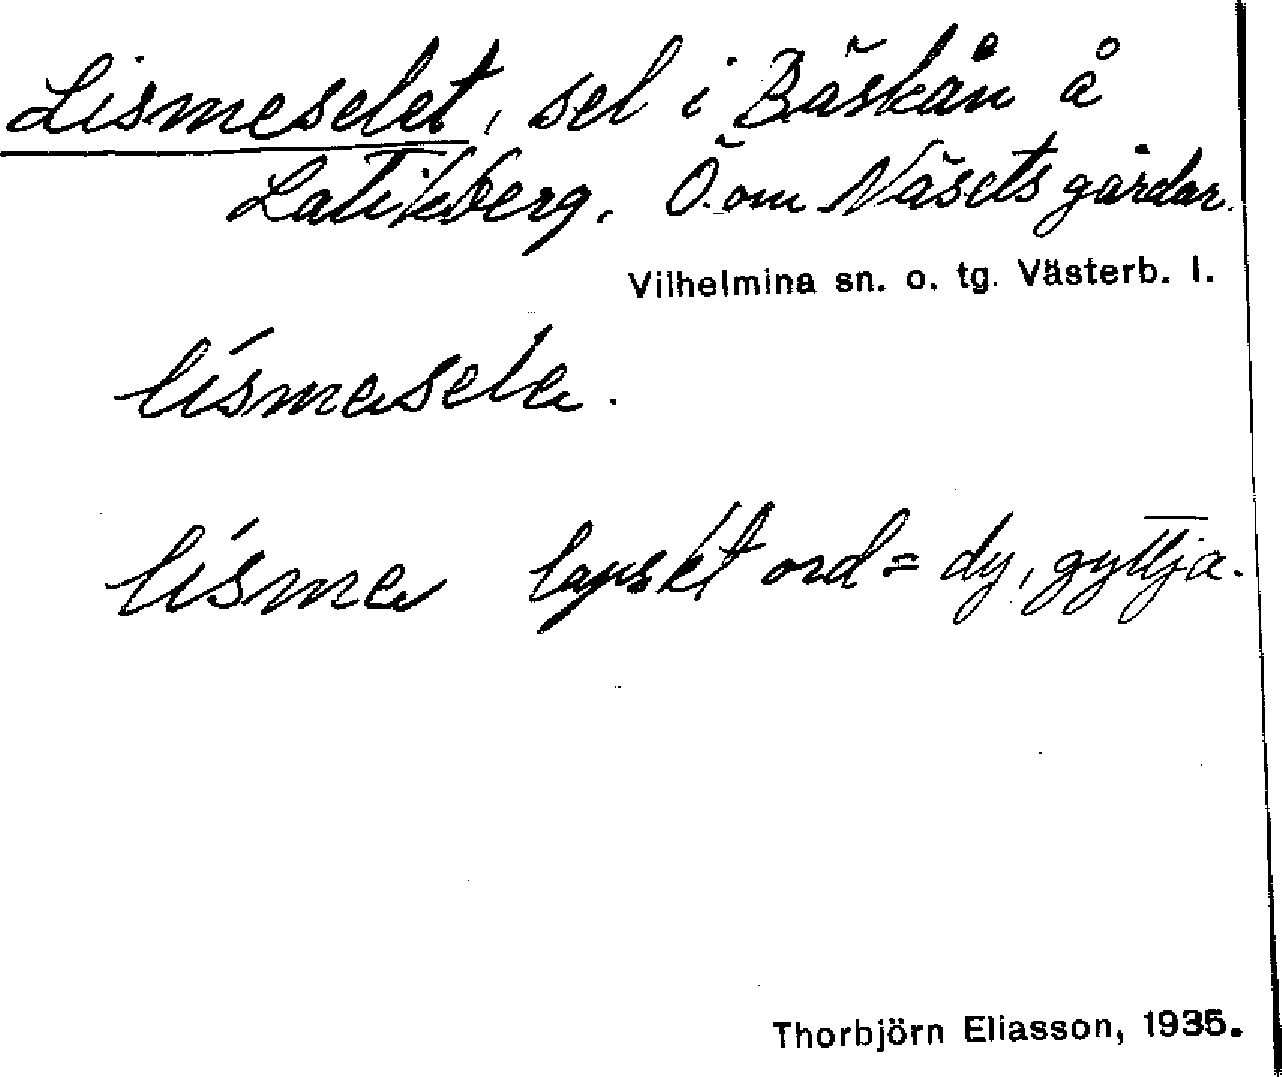 Lismeselet, sel i Bäskån å
Latikberg. Ö. om Näsets gårdar.
Vilhelmina sn. o. tg. Västerb. l.
lísmasela.
lísma lapskt ord = dy, gyttja.
Thorbjörn Eliasson, 1935.